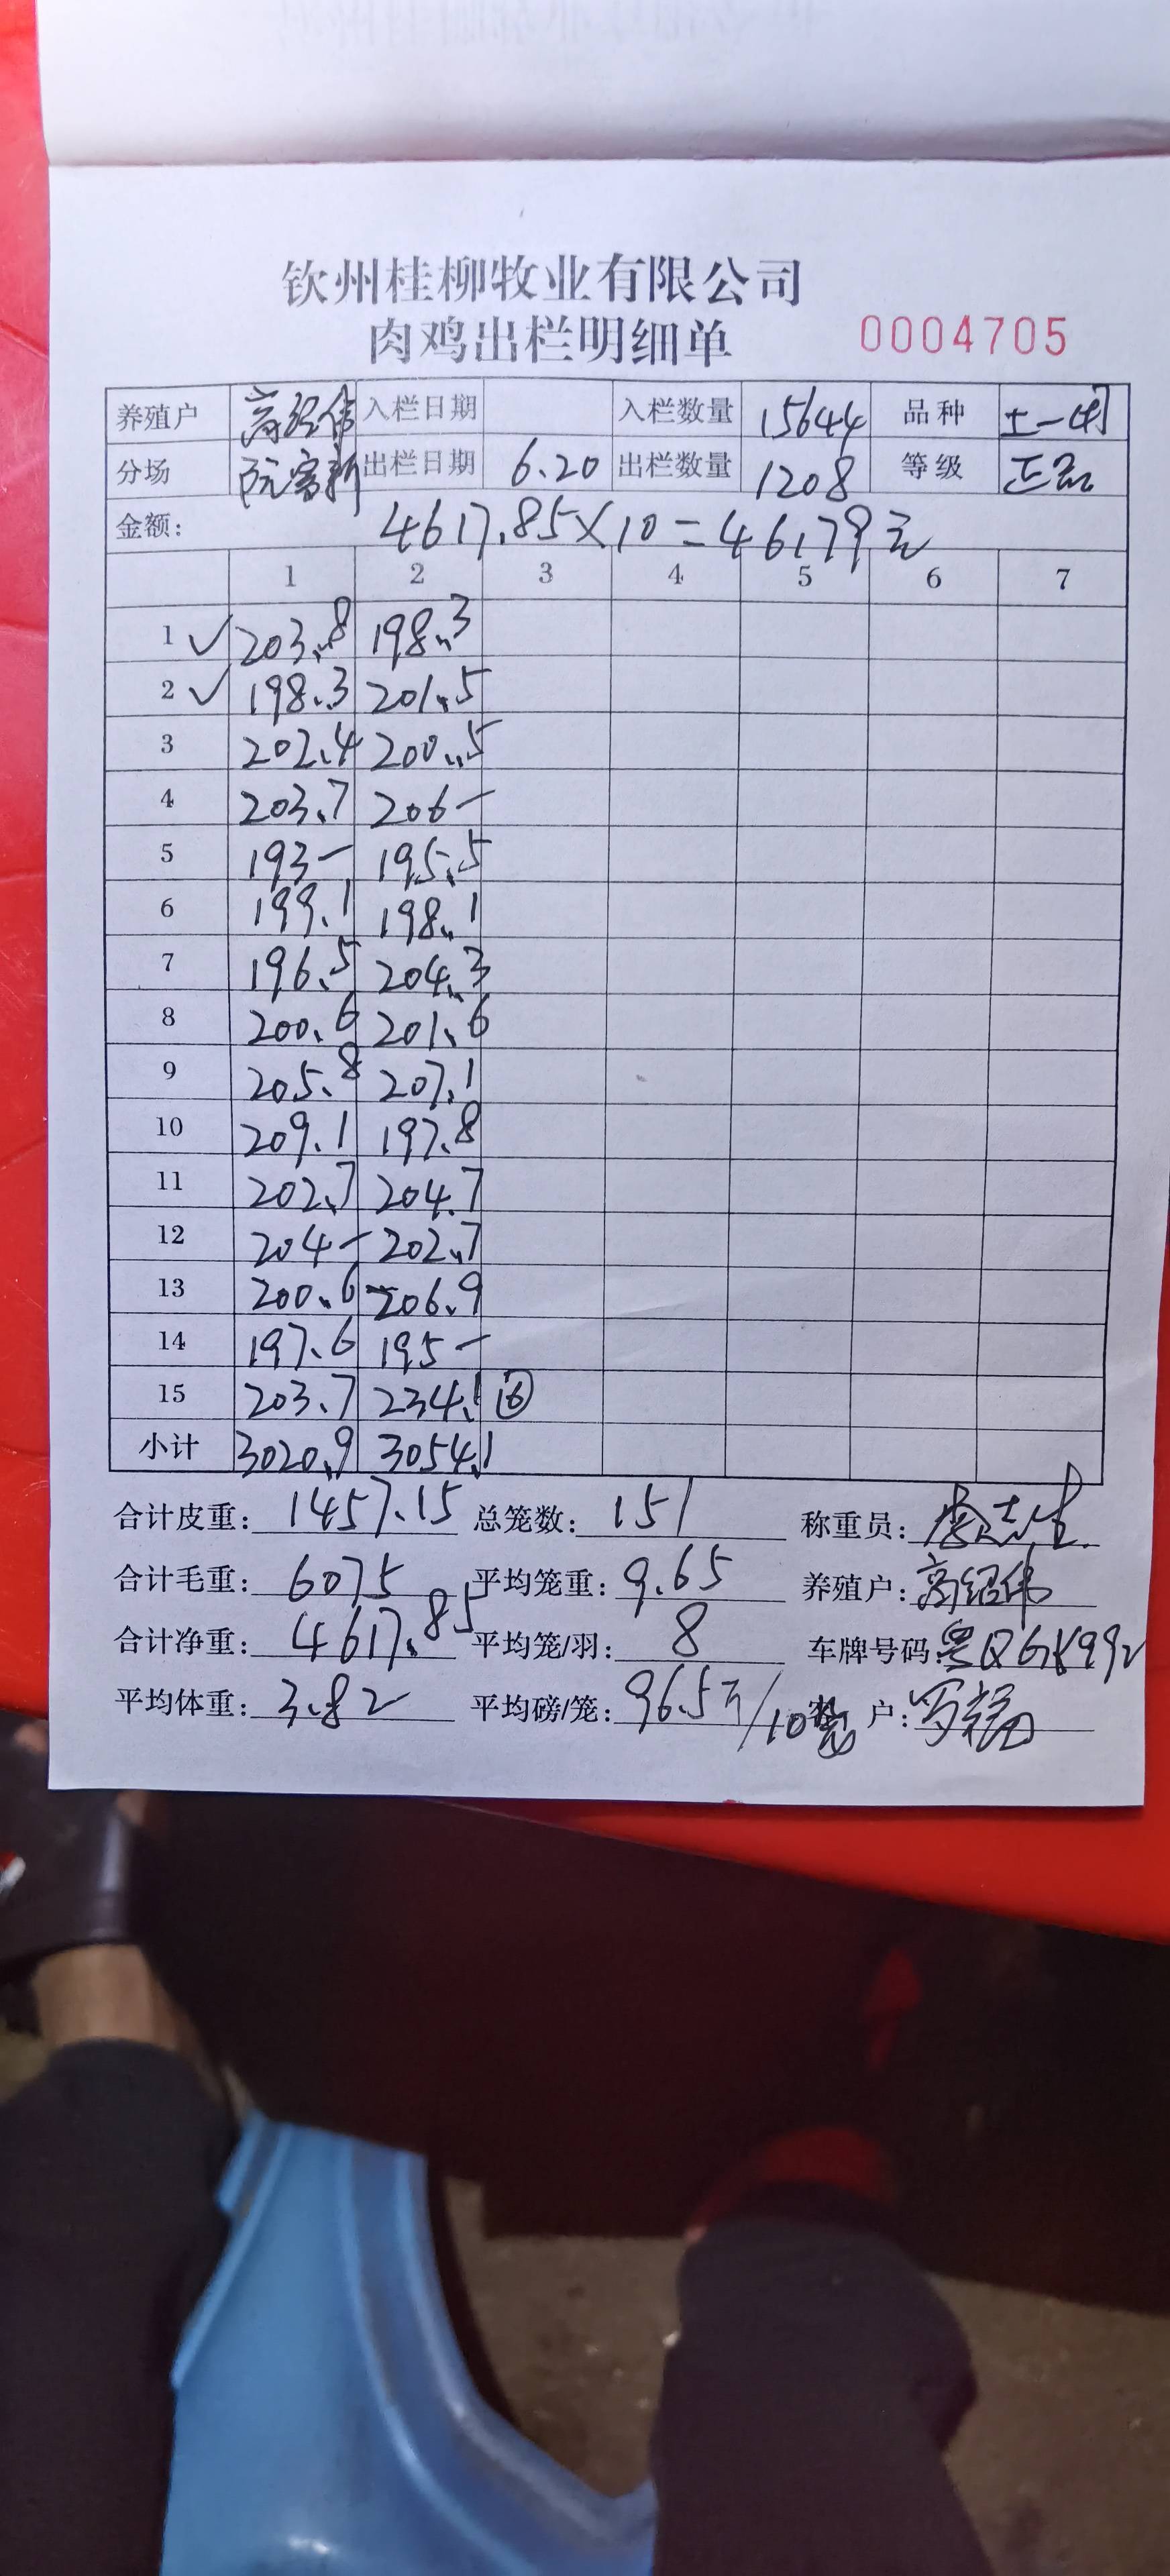 钦州桂柳牧业有限公司
肉鸡出栏明细单 0004705
养殖户 高绍伟 入栏日期 入栏数量 15644 品种 土一
分场 阮富新 出栏日期 6.20 出栏数量 1208 等级 正品
金额: 4617.85×10=46179元
1 2 3 4 5 6 7
1 ✓ 203.8 198.3
2 ✓ 198.3 201.5
3 202.4 200.5
4 203.7 206-
5 193- 195.5
6 199.1 198.1
7 196.5 204.3
8 200.6 201.6
9 205.8 207.1
10 209.1 197.8
11 202.7 204.7
12 204- 202.7
13 200.6 206.9
14 197.6 195-
15 203.7 234.1
小计 3020.9 3054.1
合计皮重: 1457.15 总笼数: 151 称重员:
合计毛重: 6075 平均笼重: 9.65 养殖户: 高绍伟
合计净重: 4617.85 平均笼/羽: 8 车牌号码: 粤Q6K992
平均体重: 3.82 平均磅/笼: 96.5斤/10笼 户: